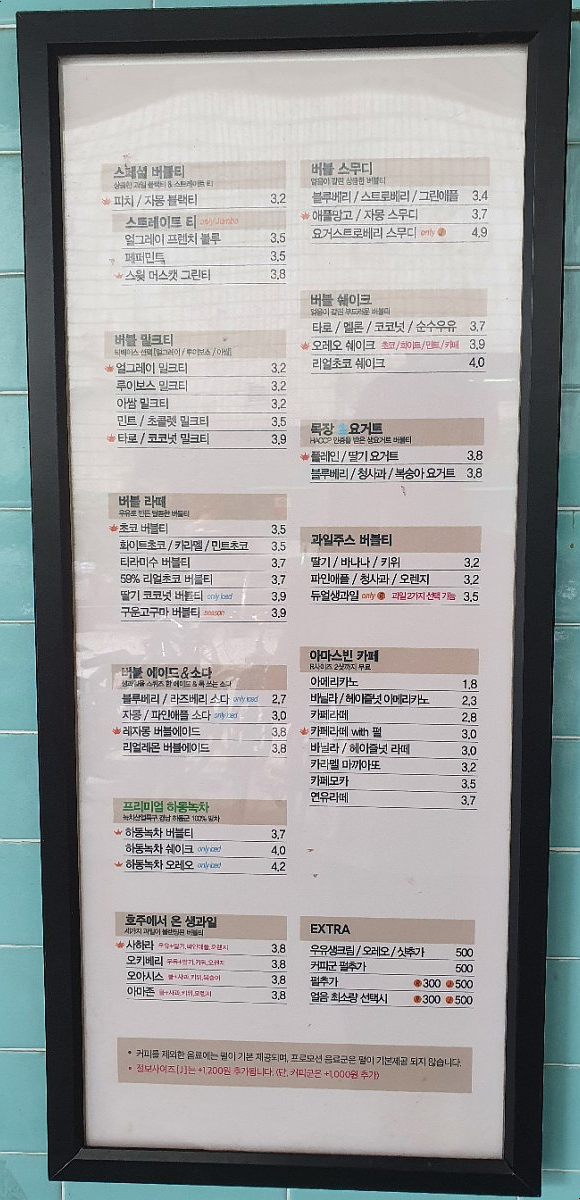 스페셜 버블티
상큼한 과일 블랙티 & 스트레이트 티
피치 / 자몽 블랙티 3,2
스트레이트 티 only Jumbo
얼그레이 프렌치 블루 3,5
페퍼민트 3,5
스윗 머스캣 그린티 3,8
버블 밀크티
티베이스 선택 [얼그레이 / 루이보스 / 아쌈]
얼그레이 밀크티 3,2
루이보스 밀크티 3,2
아쌈 밀크티 3,2
민트 / 초콜렛 밀크티 3,5
타로 / 코코넛 밀크티 3,9
버블 라떼
우유로 만든 달콤한 버블티
초코 버블티 3,5
화이트초코 / 카라멜 / 민트초코 3,5
티라미수 버블티 3,7
59% 리얼초코 버블티 3,7
딸기 코코넛 버블티 only iced 3,9
구운고구마 버블티 season 3,9
버블 에이드&소다
생과일을 스퀴즈 한 에이드 & 톡 쏘는 소다
블루베리 / 라즈베리 소다 only iced 2,7
자몽 / 파인애플 소다 only iced 3,0
레자몽 버블에이드 3,8
리얼레몬 버블에이드 3,8
프리미엄 하동녹차
녹차산업특구 경남 하동군 100% 잎차
하동녹차 버블티 3,7
하동녹차 쉐이크 only iced 4,0
하동녹차 오레오 only iced 4,2
호주에서 온 생과일
세가지 과일이 블렌딩된 버블티
사하라 우유+딸기,파인애플,오렌지 3,8
오키베리 우유+딸기,키위,오렌지 3,8
오아시스 물+사과,키위,복숭아 3,8
아마존 물+사과,키위,오렌지 3,8
버블 스무디
얼음이 갈린 상큼한 버블티
블루베리 / 스트로베리 / 그린애플 3,4
애플망고 / 자몽 스무디 3,7
요거스트로베리 스무디 only J 4,9
버블 쉐이크
얼음이 갈린 부드러운 버블티
타로 / 멜론 / 코코넛 / 순수우유 3,7
오레오 쉐이크 초코/화이트/민트/카페 3,9
리얼초코 쉐이크 4,0
목장 요거트
HACCP 인증을 받은 생요거트 버블티
플레인 / 딸기 요거트 3,8
블루베리 / 청사과 / 복숭아 요거트 3,8
과일주스 버블티
딸기 / 바나나 / 키위 3,2
파인애플 / 청사과 / 오렌지 3,2
듀얼생과일 only R 과일 2가지 선택 가능 3,5
아마스빈 카페
R사이즈 2샷까지 무료
아메리카노 1,8
바닐라 / 헤이즐넛 아메리카노 2,3
카페라떼 2,8
카페라떼 with 펄 3,0
바닐라 / 헤이즐넛 라떼 3,0
카라멜 마끼아또 3,2
카페모카 3,5
연유라떼 3,7
EXTRA
우유생크림 / 오레오 / 샷추가 500
커피군 펄추가 500
펄추가 R 300 J 500
얼음 최소량 선택시 R 300 J 500
• 커피를 제외한 음료에는 펄이 기본 제공되며, 프로모션 음료군은 펄이 기본제공 되지 않습니다.
• 점보사이즈 [J]는 +1,200원 추가됩니다. (단, 커피군은 +1,000원 추가)